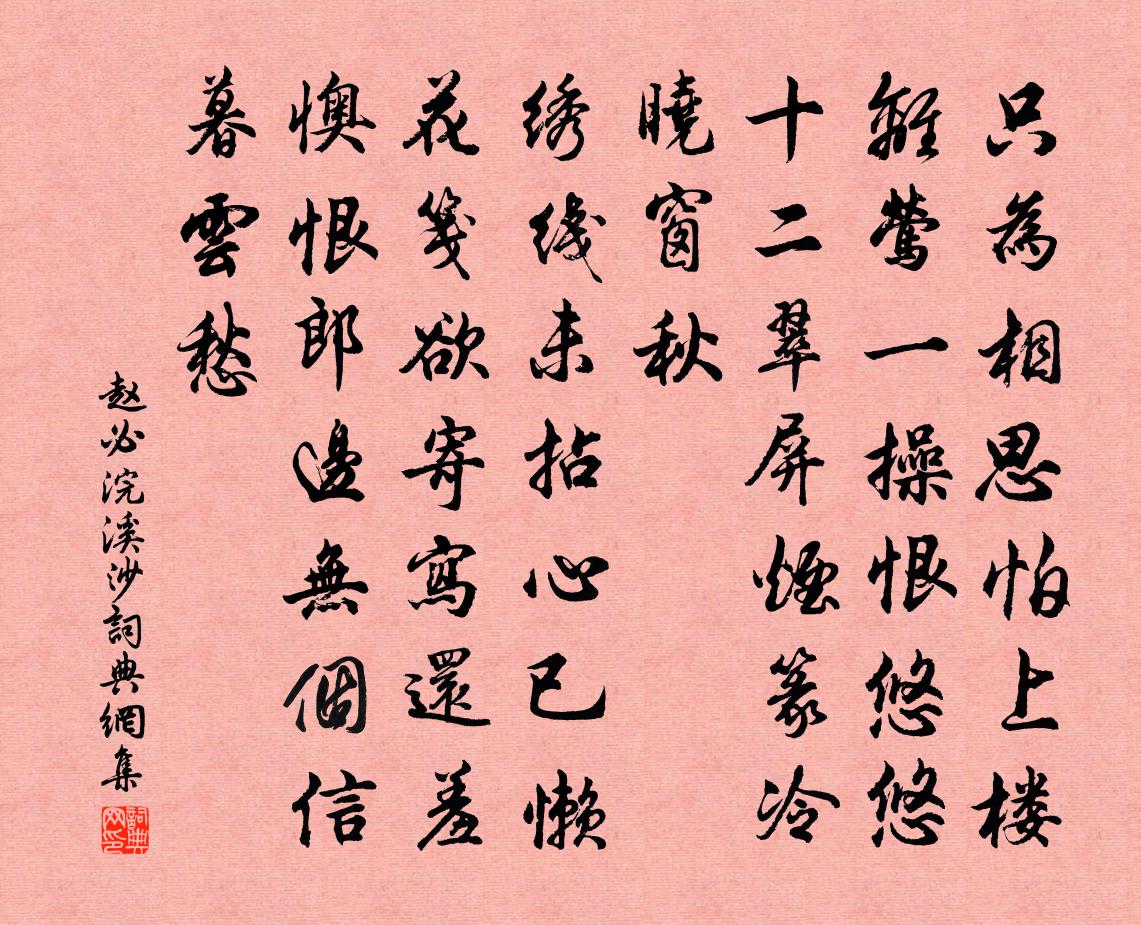 只為相思怕上楼
離鶯一操恨悠悠
十二翠屏煙篆冷
曉窗秋
绣綫未拈心已懶
花箋欲寄寫還羞
懊恨郎邊無個信
暮雲愁
赵必浣溪沙詞典網集
詞典网印